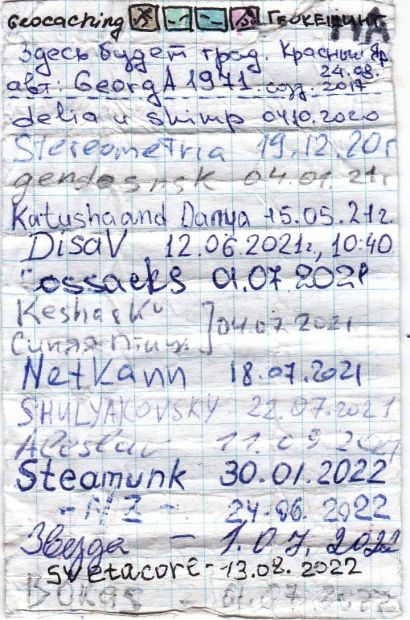 Geocaching Геокешинг
НА
Здесь будет град. Красный Яр
24.08.
авт: GeorgA1971. созд. 2017
delia и shimp 04.10.2020
Stereometria 19.12.20г
gendosnsk 04.01.21г.
Katusha and Danya 15.05.21г.
DisaV 12.06.2021г, 10:40
Cossacks 01.07.2021
KesharKu
Синяя птица ] 04.07.2021
NetKann 18.07.2021
SHULYAKOVSKY 22.07.2021
11.09
Steamunk 30.01.2022
- NZ - 24.06.2022
Звезда - 1.07, 2022
svetacore - 13.08.2022
07.2022